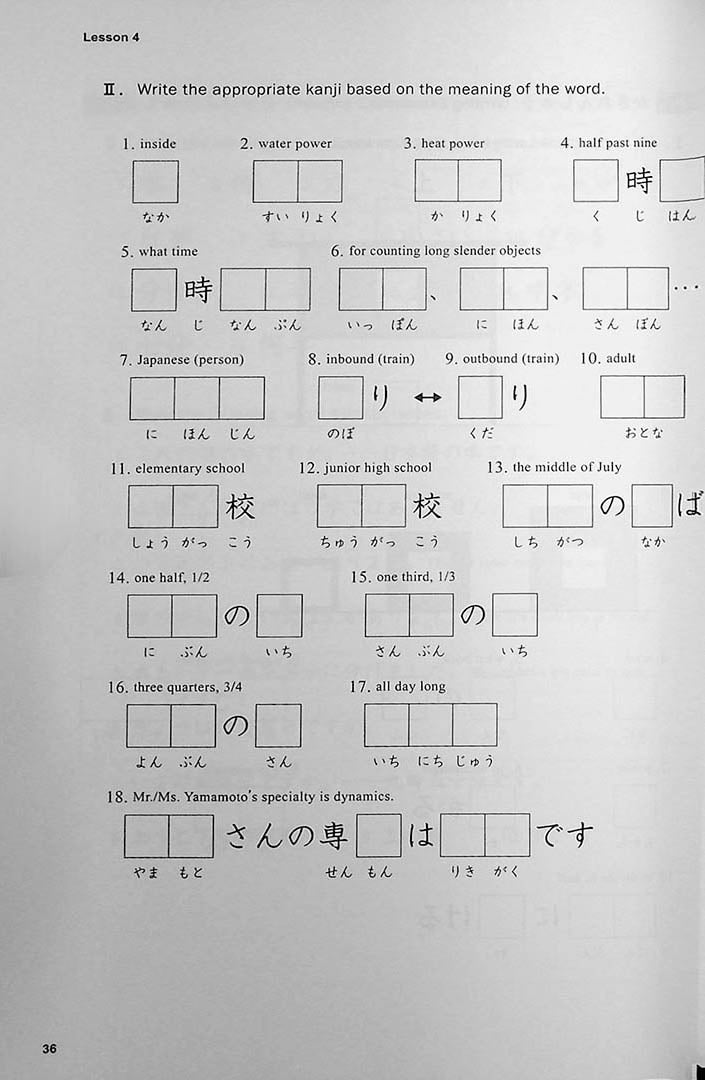 Lesson 4
Ⅱ. Write the appropriate kanji based on the meaning of the word.
1. inside 2. water power 3. heat power 4. half past nine
時
なか すい りょく か りょく く じ はん
5. what time 6. for counting long slender objects
時 、 、 ···
なん じ なん ぷん いっ ぽん に ほん さん ぼん
7. Japanese (person) 8. inbound (train) 9. outbound (train) 10. adult
り ↔ り
に ほん じん のぼ くだ おとな
11. elementary school 12. junior high school 13. the middle of July
校 校 の ば
しょう がっ こう ちゅう がっ こう しち がつ なか
14. one half, 1/2 15. one third, 1/3
の の
に ぶん いち さん ぶん いち
16. three quarters, 3/4 17. all day long
の
よん ぶん さん いち にち じゅう
18. Mr./Ms. Yamamoto's specialty is dynamics.
さんの専 は です
やま もと せん もん りき がく
36